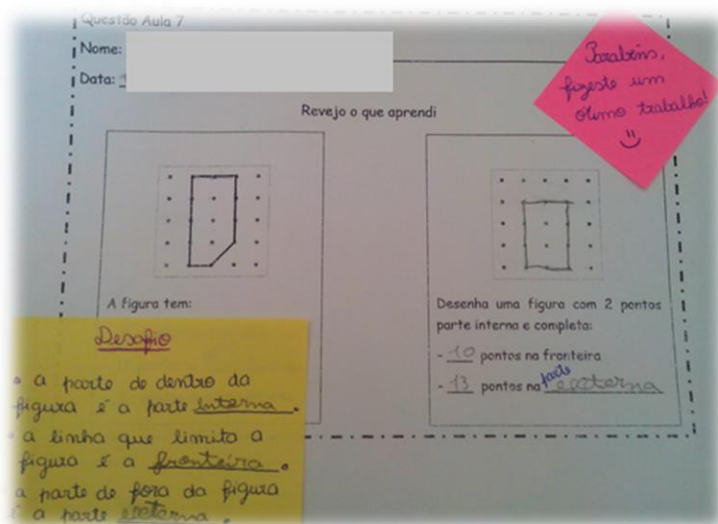 Questão Aula 7
Nome:
Data:
Parabéns,
fizeste um
ótimo trabalho!
Revejo o que aprendi
A figura tem:
Desenha uma figura com 2 pontos
parte interna e completa:
- 10 pontos na fronteira
- 13 pontos na parte externa
Desafio
a parte de dentro da
figura é a parte interna.
a linha que limita a
figura é a fronteira.
a parte de fora da figura
é a parte externa.